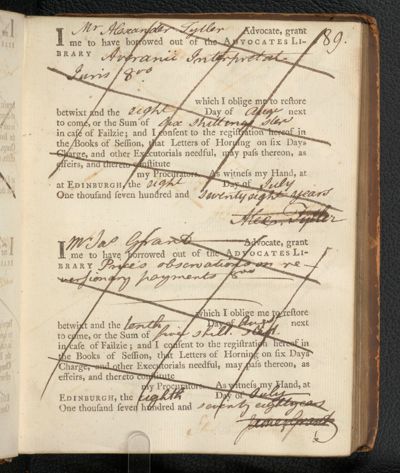 189.
I Mr Alexander Tytler Advocate, grant
me to have borrowed out of the ADVOCATES LI-
BRARY Averanii Interpretat.
Juris 8vo
which I oblige me to reſtore
betwixt and the eight Day of Augt next
to come, or the Sum of six shillings sterl
in caſe of Failzie; and I conſent to the regiſtration hereof in
the Books of Seſſion, that Letters of Horning on ſix Days
Charge, and other Executorials needful, may paſs thereon, as
effeirs, and thereto conſtitute
my Procurators. As witneſs my Hand, at
at EDINBURGH, the eight Day of July
One thouſand ſeven hundred and seventy eight years
Alexr Tytler
I Mr Jas Grant Advocate, grant
me to have borrowed out of the ADVOCATES LI-
BRARY Price's observations on re-
versionary payments 8vo
which I oblige me to reſtore
betwixt and the tenth Day of Augt next
to come, or the Sum of five shill sterl
in caſe of Failzie; and I conſent to the regiſtration hereof in
the Books of Seſſion, that Letters of Horning on ſix Days
Charge, and other Executorials needful, may paſs thereon, as
effeirs, and thereto conſtitute
my Procurators. As witneſs my Hand, at
EDINBURGH, the eighth Day of July
One thouſand ſeven hundred and seventy eight years
James Grant